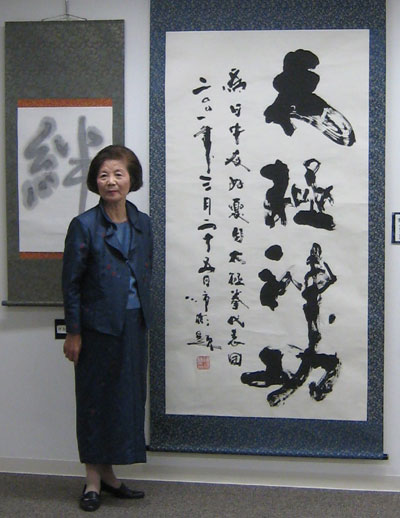 太極神功
為日中友好太極拳代表団
二〇〇一年三月二十五日
絆